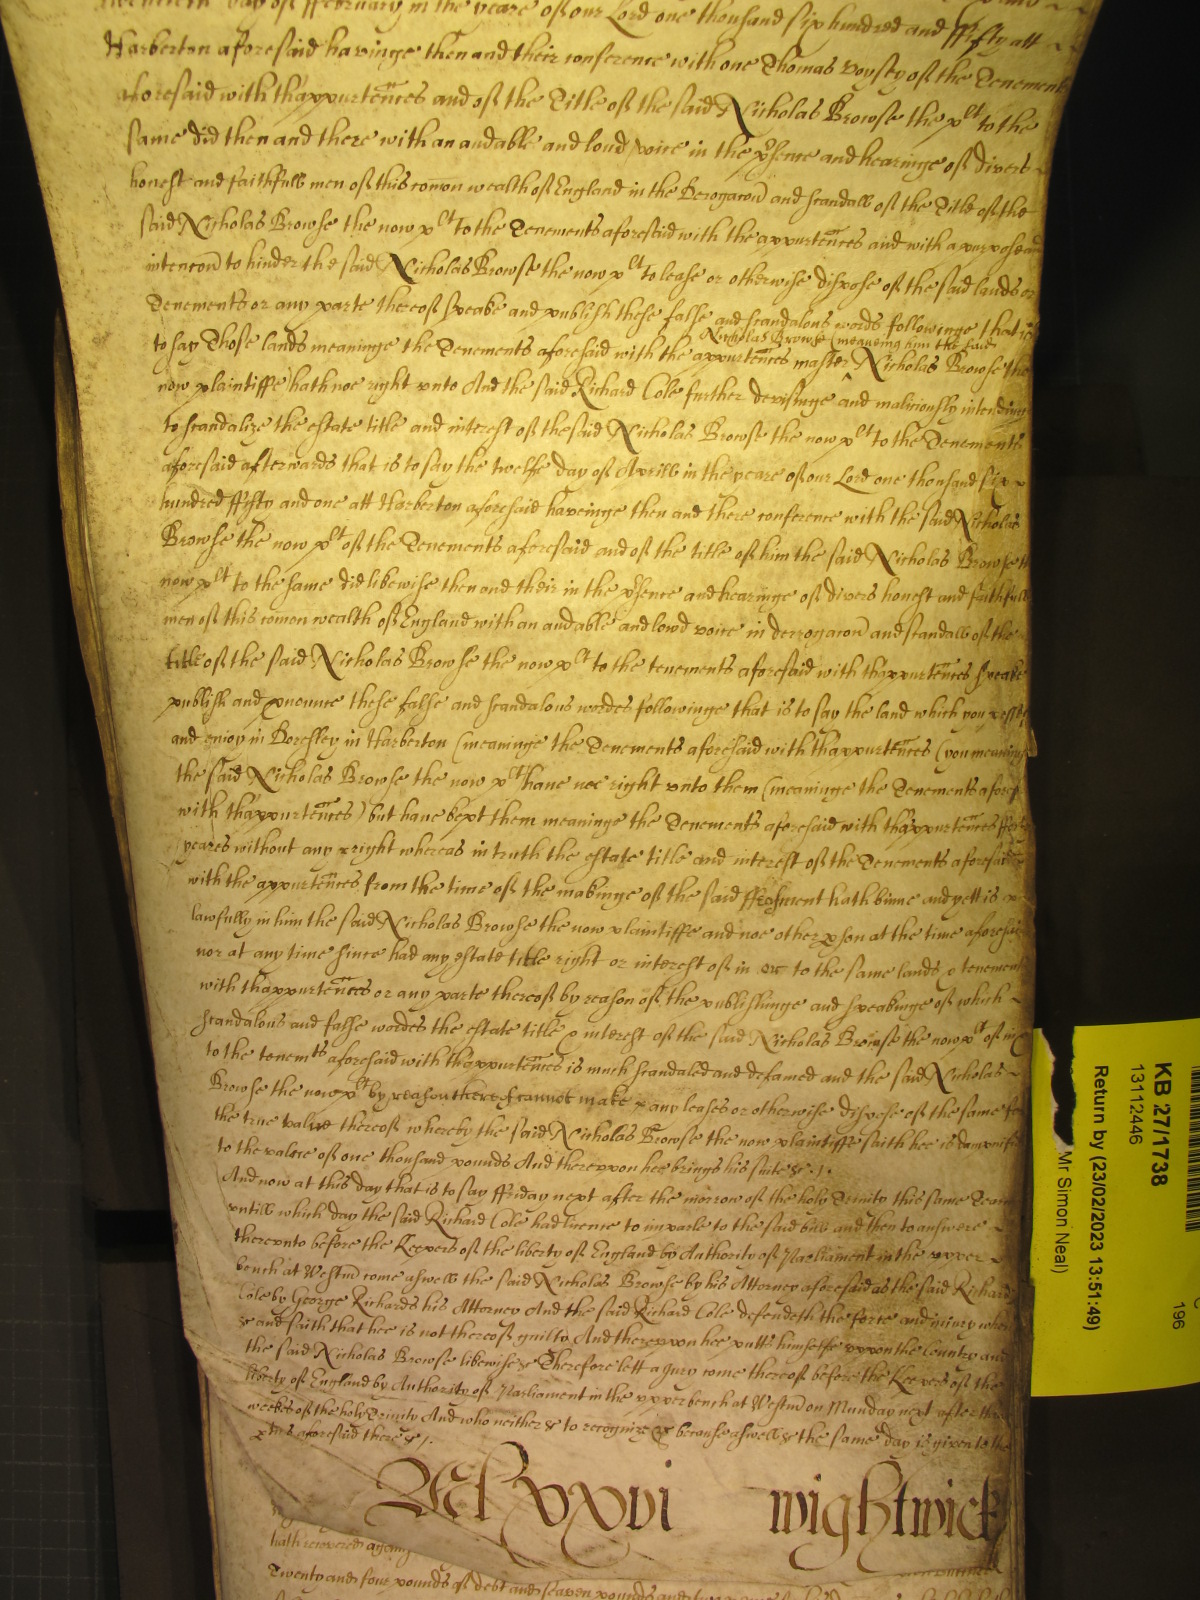 day of ffebruary in the yeare of our Lord one thousand six hundred and ffifty att
Harberton aforesaid havinge then and their conference with one Thomas voysey of the Tenement
aforesaid with thappurtences and of the Title of the said Nicholas Browse the now plt to the
same did then and there with an audable and loud voice in the psence and hearinge of divers
honest and faithfull men of this comon wealth of England in the Derogacon and scandall of the Title of the
said Nicholas Browse the now plt to the Tenements aforesaid with the appurtences and with a purpose and
intencon to hinder the said Nicholas Browse the now plt to lease or otherwise dispose of the said lands or
Tenements or any parte thereof speake and publish these false and scandalous words followinge that is
to say Those lands meaninge the Tenements aforesaid with the appurtences master Nicholas Browse (meaning him the said Nicholas Browse the
now plaintiffe) hath noe right unto And the said Richard Cole further devisinge and maliciously intending
to scandalize the estate title and interest of the said Nicholas Browse the now plt to the Tenements
aforesaid afterwards that is to say the twelfe day of Aprill in the yeare of our Lord one thousand six
hundred ffifty and one att Harberton aforesaid haveinge then and there conference with the said Nicholas
Browse the now plt of the Tenements aforesaid and of the title of him the said Nicholas Browse the
now plt to the same did likewise then and their in the psence and hearinge of divers honest and faithfull
men of this comon wealth of England with an audable and lowd voice in derrogacon and scandall of the
title of the said Nicholas Browse the now plt to the tenements aforesaid with thappurtences speake
publish and pnounce these false and scandalous wordes followinge that is to say the land which you
and enjoy in Boreston in Harberton (meaninge the Tenements aforesaid with thappurtences (you meaning
the said Nicholas Browse the now plt have noe right unto them (meaninge the Tenements aforesaid
with thappurtences) but have kept them meaninge the Tenements aforesaid with thappurtences
yeares without any right whereas in truth the estate title and interest of the Tenements aforesaid
with the appurtences from the time of the makinge of the said ffeofment hath binne and yett is
lawfully in him the said Nicholas Browse the now plaintiffe and noe other pson at the time aforesaid
nor at any time since had any estate title right or interest of in or to the same lands & tenements
with thappurtences or any parte thereof by reason of the publishinge and speakinge of which
scandalous and false wordes the estate title & interest of the said Nicholas Browse the now plt of in &
to the tenemts aforesaid with thappurtences is much scandaled and defamed and the said Nicholas
Browse the now plt by reason thereof cannot make any leases or otherwise dispose of the same for
the true value thereof whereby the said Nicholas Browse the now plaintiffe saith hee is dampnified
to the value of one thousand pounds And thereupon hee brings his suite &c.
And now at this day that is to say ffriday next after the morrow of the holy Trinity this same Tearme
untill which day the said Richard Cole had licence to imparle to the said bill and then to answere
thereunto before the Keepers of the liberty of England by Authority of Parliament in the upper
bench at Westm come aswell the said Nicholas Browse by his Attorney aforesaid as the said Richard
Cole by George Richards his Attorney And the said Richard Cole defendeth the force and injury when
&c and saith that hee is not thereof guilty And thereupon hee putts himselfe uppon the Country and
the said Nicholas Browse likewise &c Therefore lett a jury come thereof before the Keepers of the
liberty of England by Authority of Parliament in the upper bench at Westm on Munday next after three
weekes of the holy Trinity And who neither &c to recognize &c because aswell &c the same day is given to the
pties aforesaid there &c
xxvi wightwick
hath recovered against
Twenty and foure pounds of debt and seaven pounds and
KB 27/1738
13112446
Return by (23/02/2023 13:51:49)
Mr Simon Neal)
196